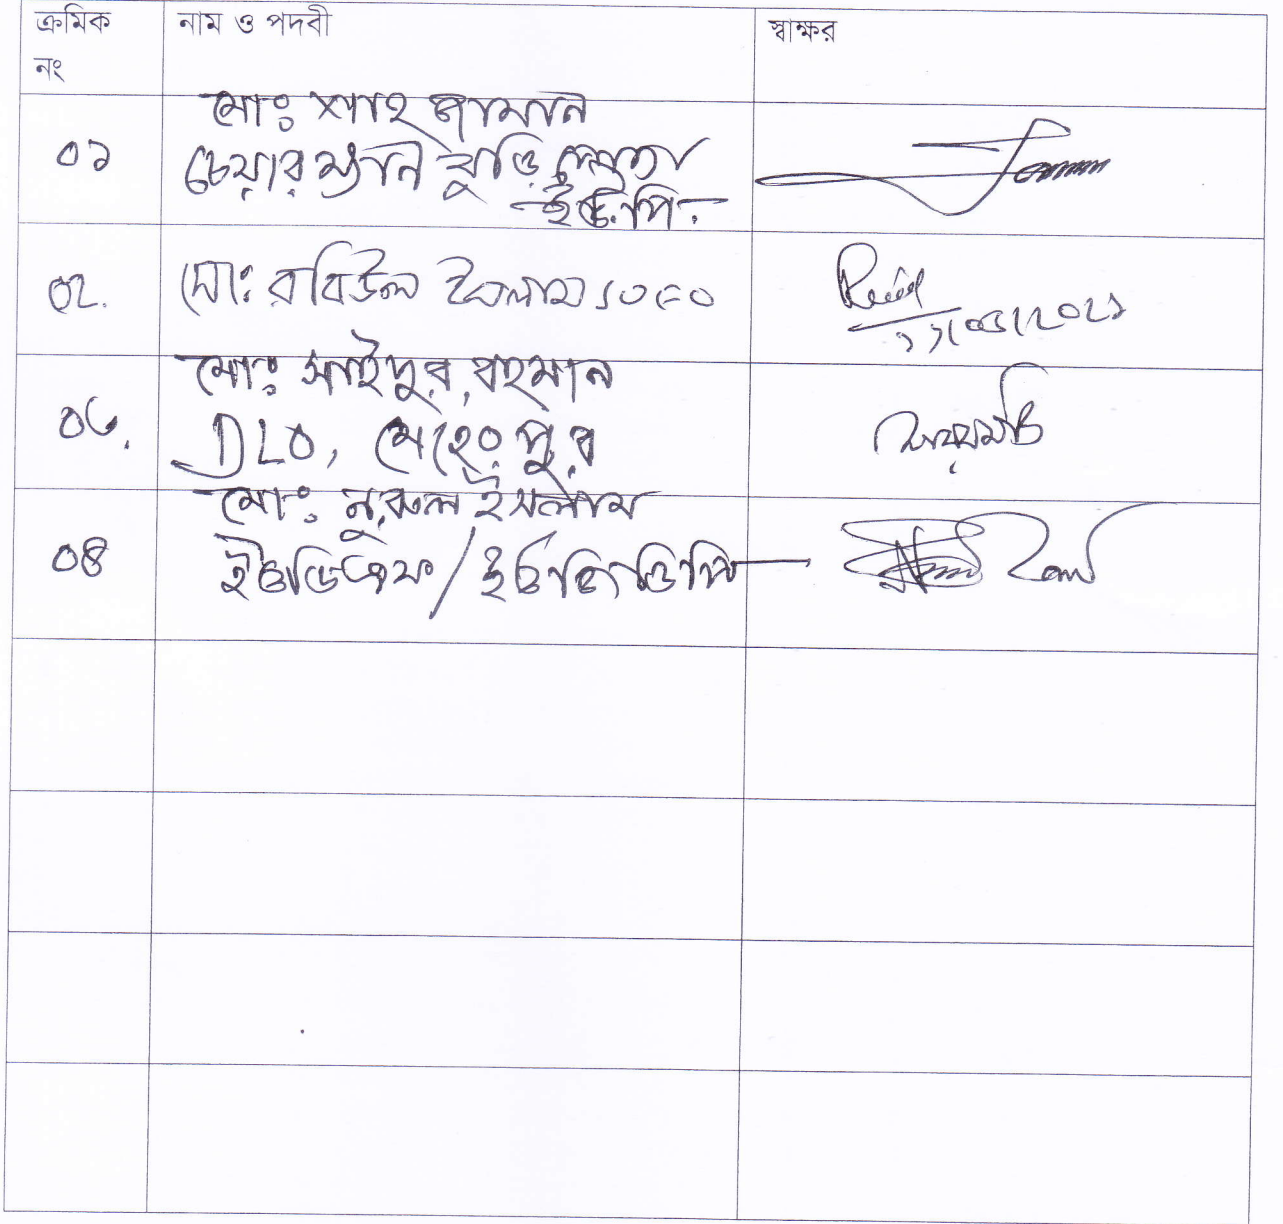 ক্রমিক নাম ও পদবী স্বাক্ষর
নং
মোঃ শাহ জামান
০১ চেয়ারম্যান বুড়িপোতা
ইউ.পি.
০২. মোঃ রবিউল ইসলাম
১১/০৫/২০২১
মোঃ সাইদুর রহমান
০৩. DLO, মেহেরপুর
মোঃ নুরুল ইসলাম
০৪ ইউডিএফ/ইউজিডিপি